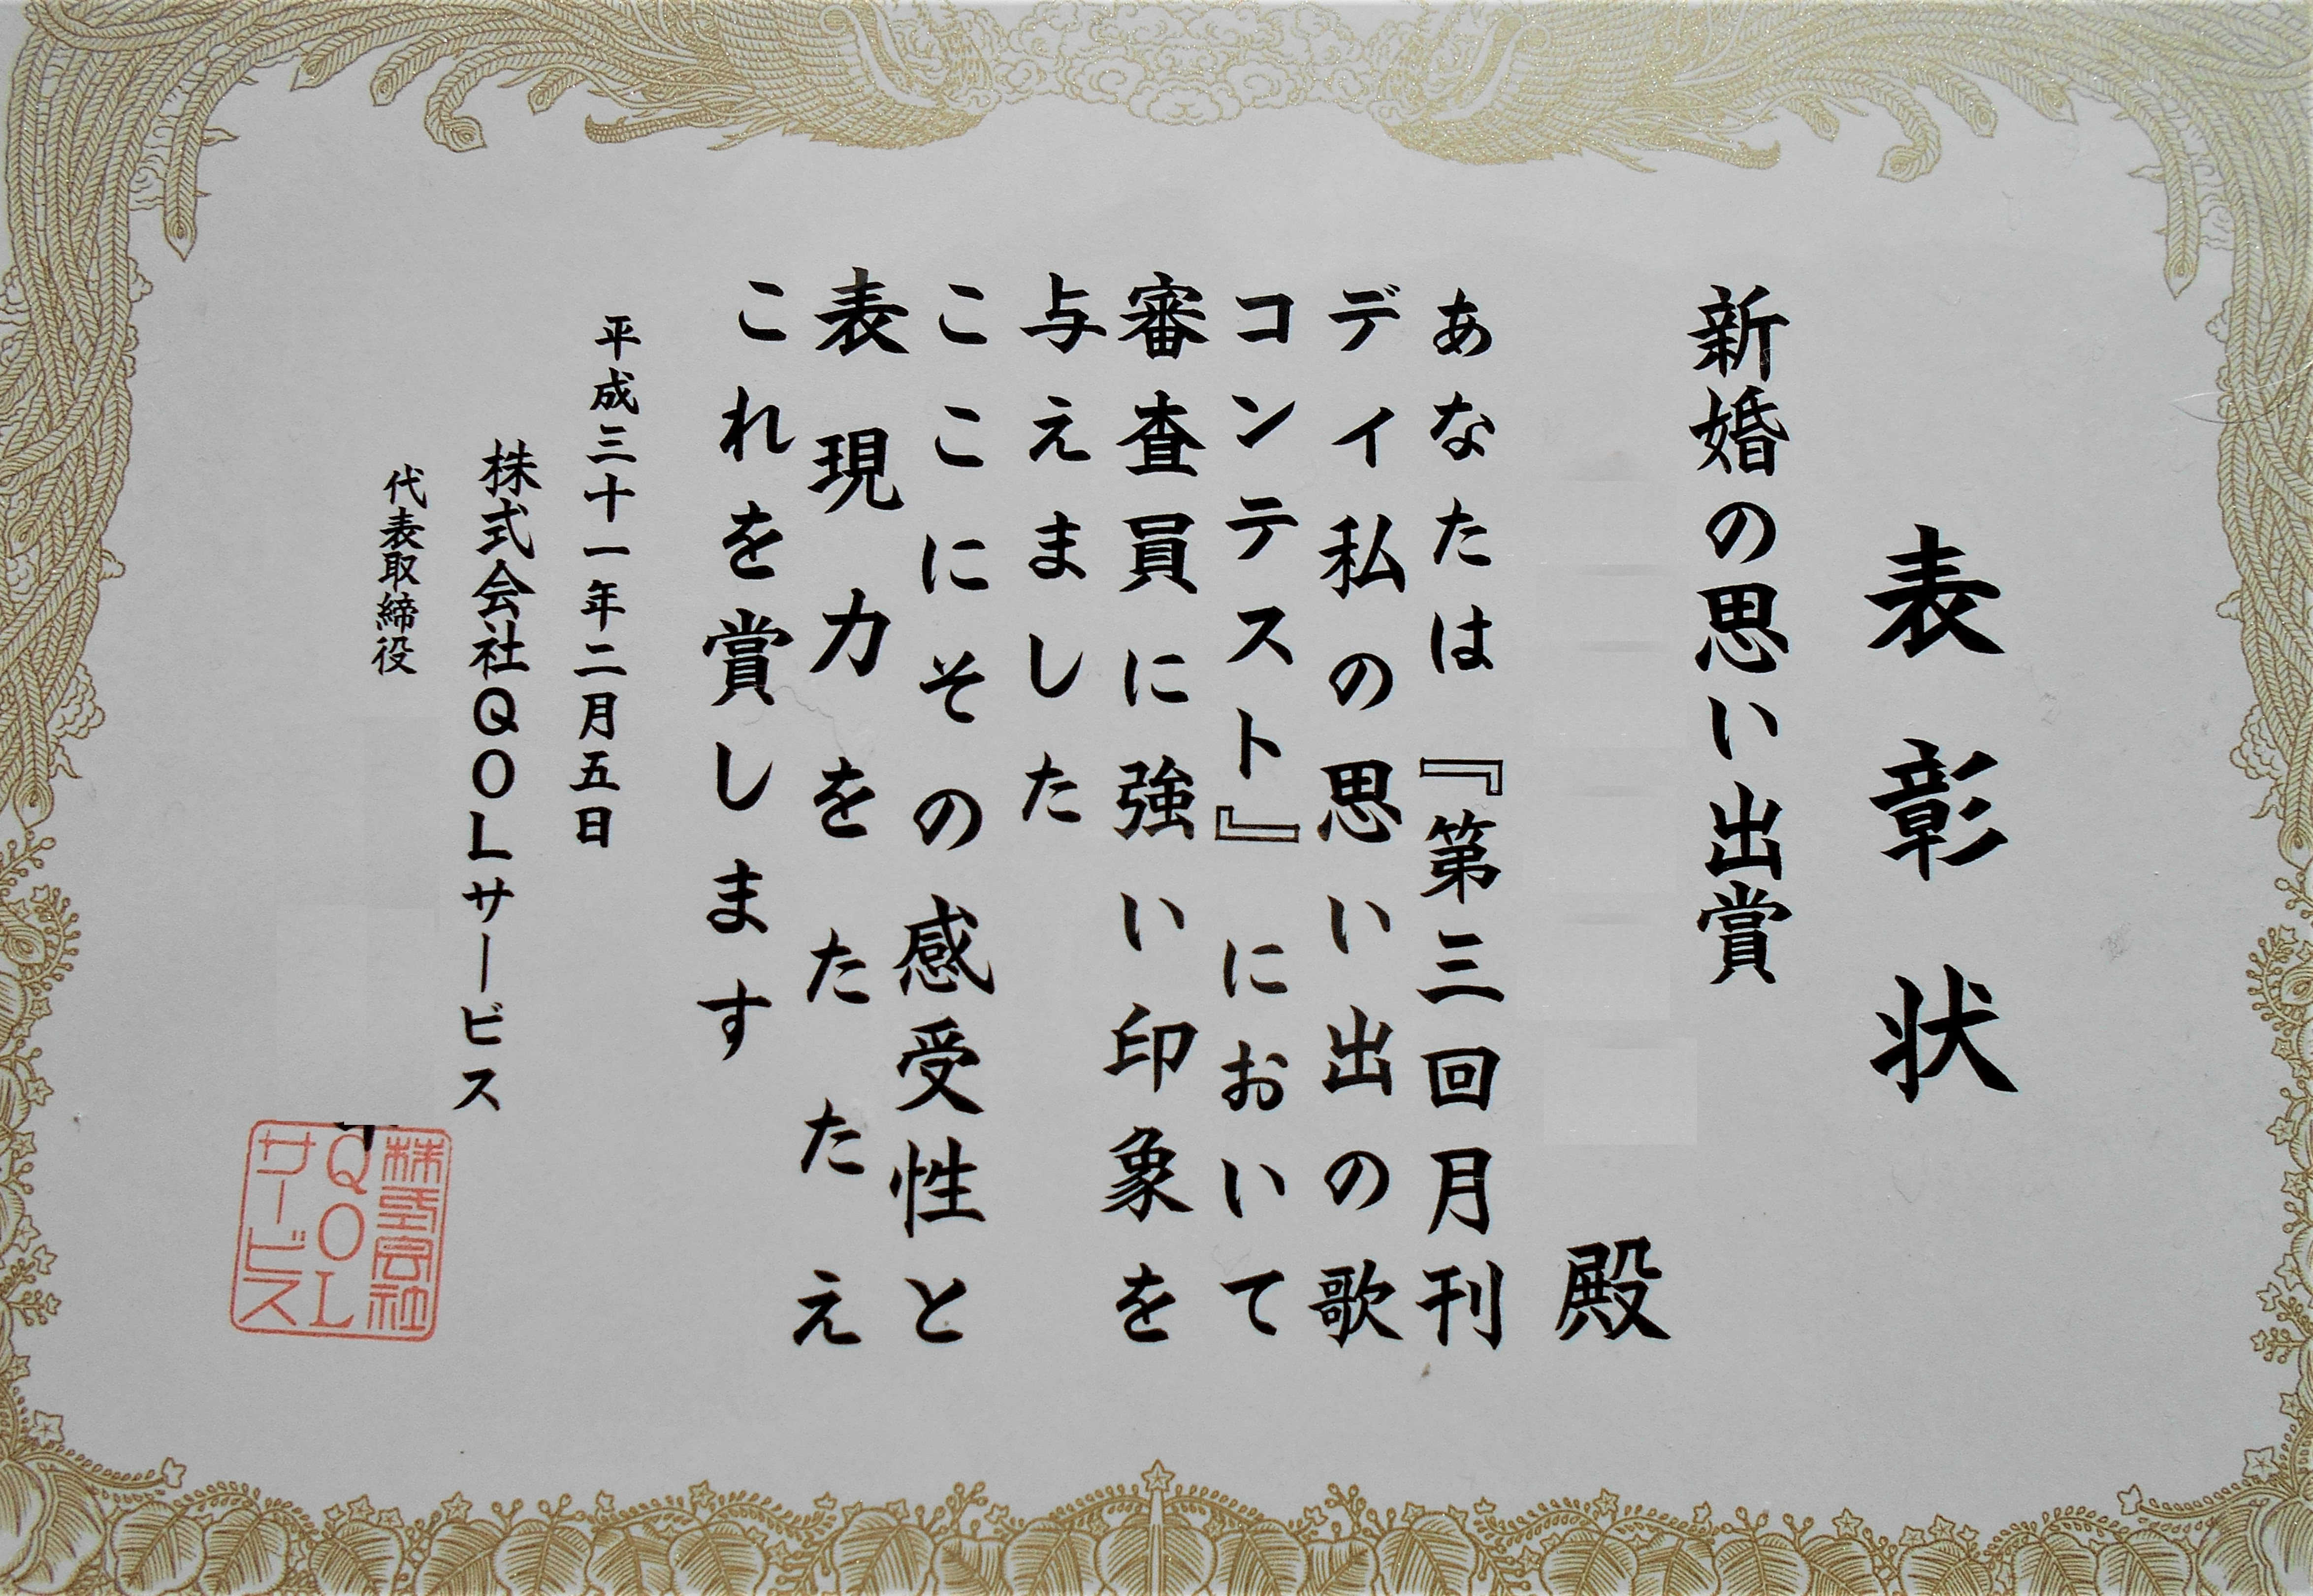 表彰状
新婚の思い出賞
殿
あなたは『第三回月刊
デイ私の思い出の歌
コンテスト』において
審査員に強い印象を
与えました
ここにその感受性と
表現力をたたえ
これを賞します
平成三十一年二月五日
株式会社QOLサービス
代表取締役
株式会社
QOL
サービス